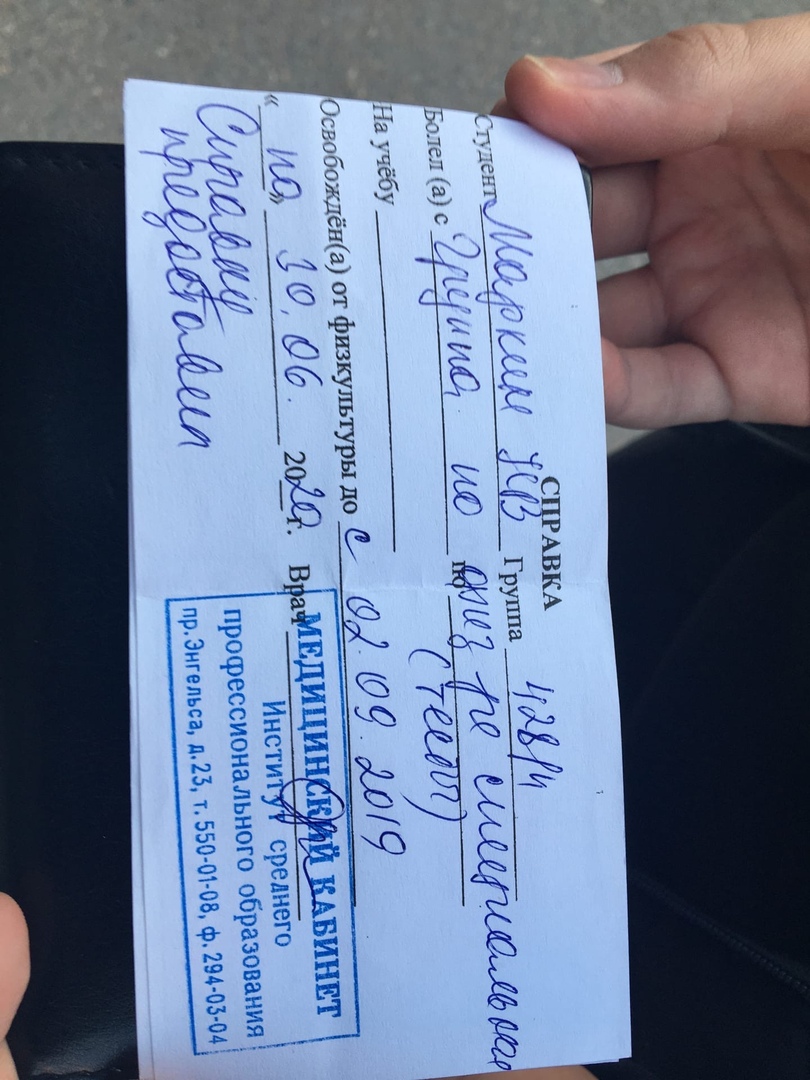 СПРАВКА
Студент Маркин НВ Группа 428/4
Болел (а) с Группа по физ-ре специальная
по (теория)
На учёбу
Освобождён(а) от физкультуры до с 02.09.2019
« по » 30.06. 2020 г. Врач
Справку
предоставил
МЕДИЦИНСКИЙ КАБИНЕТ
Институт среднего
профессионального образования
пр. Энгельса, д.23, т. 550-01-08, ф. 294-03-04